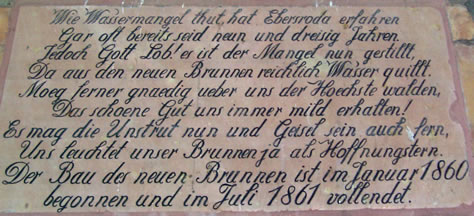 Wie Wassermangel thut, hat Ebersroda erfahren
Gar oft bereits seid neun und dreisig Jahren.
Jedoch Gott Lob! es ist der Mangel nun gestillt,
Da aus den neuen Brunnen reichlich Wasser quillt.
Moeg ferner gnaedig ueber uns der Hoechste walden,
Das schoene Gut uns immer mild erhalten!
Es mag die Unstrut nun und Geisel sein auch fern,
Uns leuchtet unser Brunnen ja als Hoffnungstern.
Der Bau des neuen Brunnen ist im Januar 1860
begonnen und im Juli 1861 vollendet.